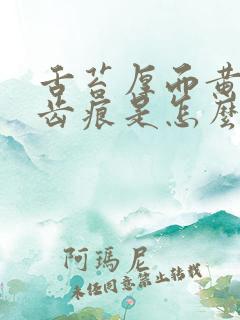 舌苔厚而黄
齿痕是怎麽
阿瑪尼
未经同意禁止转载